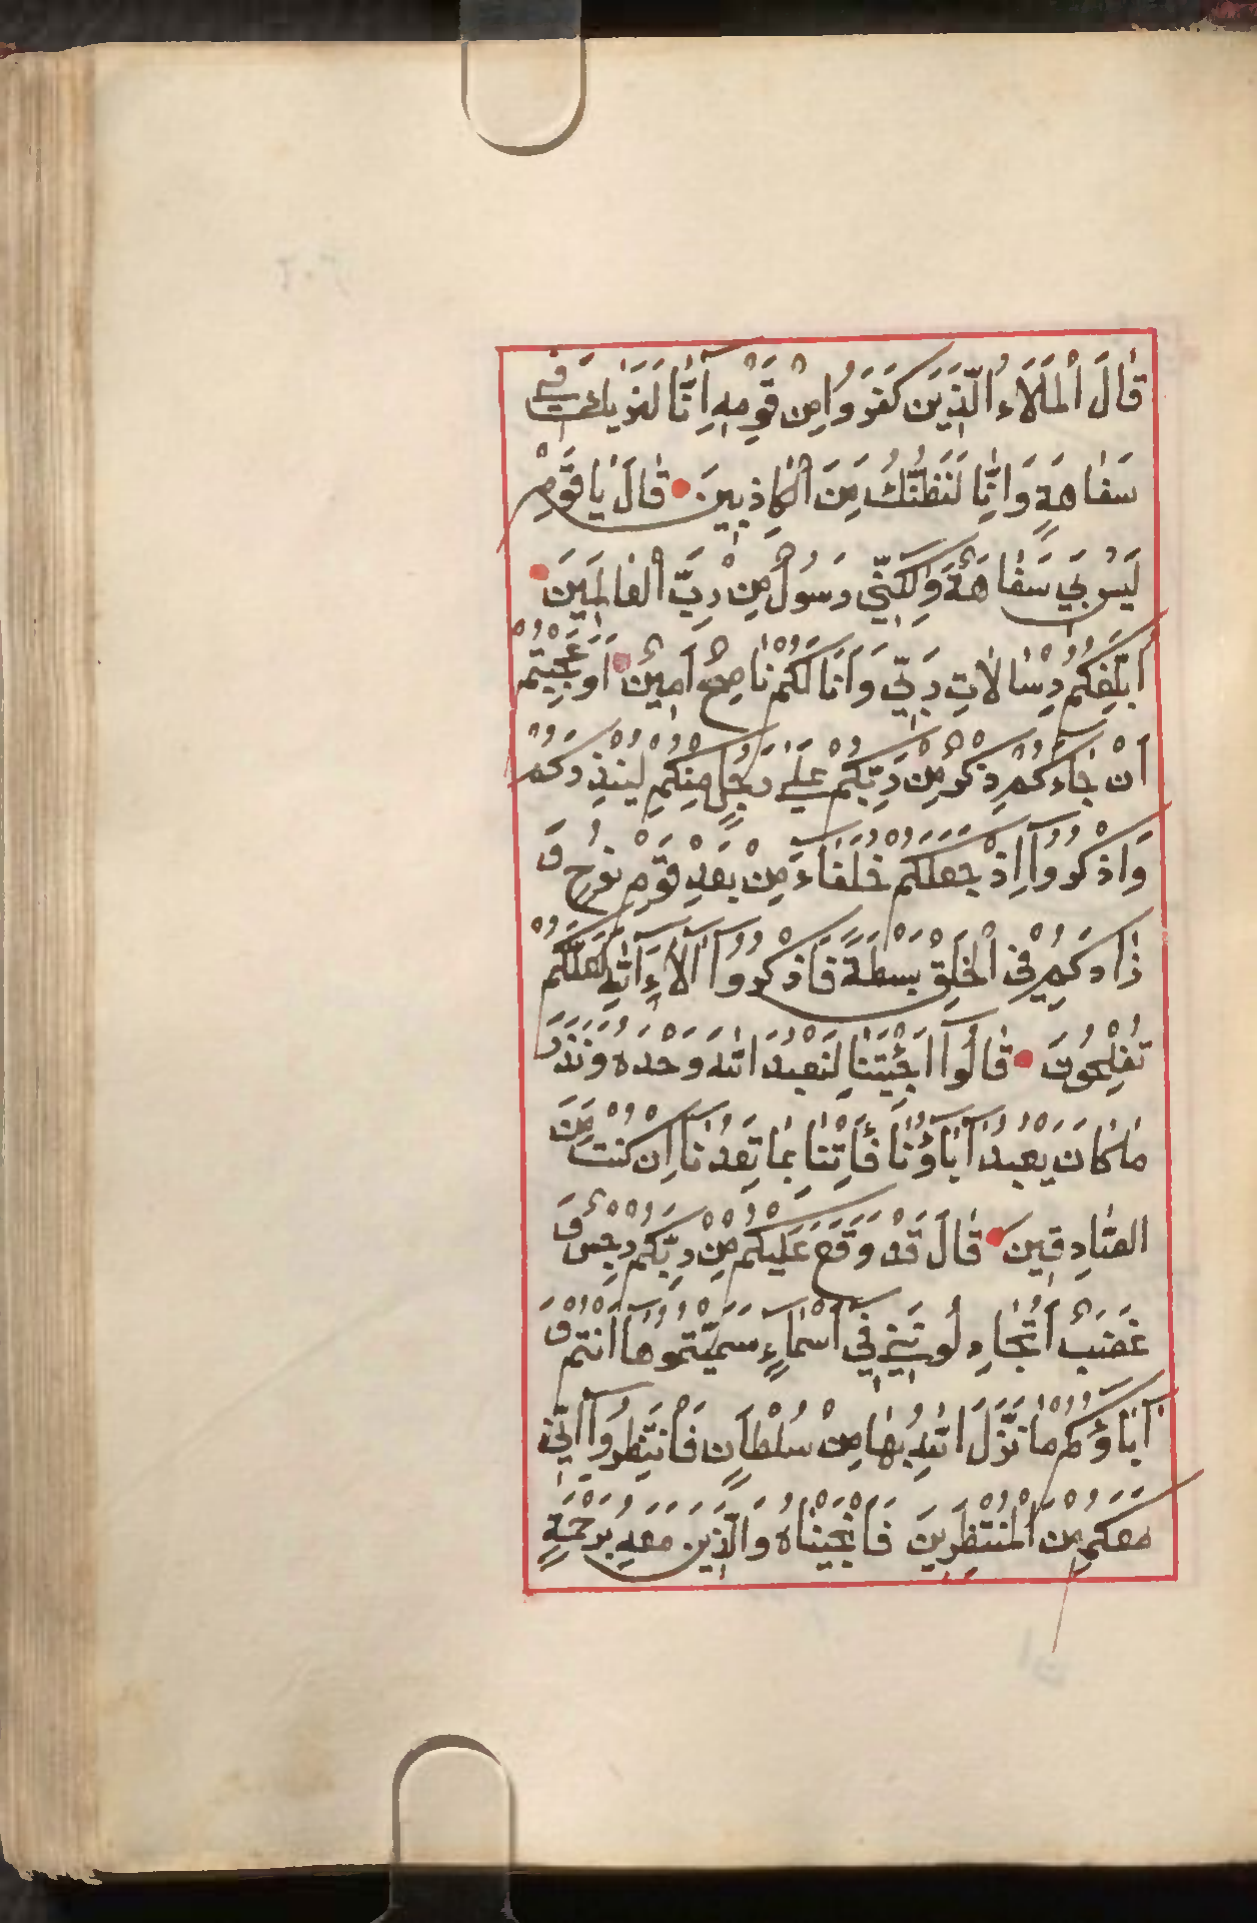 قَالَ الْمَلَاءُ الَّذِينَ كَفَرُوا مِنْ قَوْمِهِ اِنَّا لَنَرٰيكَ فِي
سَفَاهَةٍ وَاِنَّا لَنَظُنُّكَ مِنَ الْكَاذِبِينَ قَالَ يَا قَوْمِ
لَيْسَ بِي سَفَاهَةٌ وَلٰكِنِّي رَسُولٌ مِنْ رَبِّ الْعَالَمِينَ
اُبَلِّغُكُمْ رِسَالَاتِ رَبِّي وَاَنَا لَكُمْ نَاصِحٌ اَمِينٌ اَوَعَجِبْتُمْ
اَنْ جَاءَكُمْ ذِكْرٌ مِنْ رَبِّكُمْ عَلَى رَجُلٍ مِنْكُمْ لِيُنْذِرَكُمْ
وَاذْكُرُوا اِذْ جَعَلَكُمْ خُلَفَاءَ مِنْ بَعْدِ قَوْمِ نُوحٍ وَ
زَادَكُمْ فِي الْخَلْقِ بَسْطَةً فَاذْكُرُوا آلَاءَ اللهِ لَعَلَّكُمْ
تُفْلِحُونَ قَالُوا اَجِئْتَنَا لِنَعْبُدَ اللهَ وَحْدَهُ وَنَذَرَ
مَا كَانَ يَعْبُدُ آبَاؤُنَا فَأْتِنَا بِمَا تَعِدُنَا اِنْ كُنْتَ مِنَ
الصَّادِقِينَ قَالَ قَدْ وَقَعَ عَلَيْكُمْ مِنْ رَبِّكُمْ رِجْسٌ وَ
غَضَبٌ اَتُجَادِلُونَنِي فِي اَسْمَاءٍ سَمَّيْتُمُوهَا اَنْتُمْ وَ
آبَاؤُكُمْ مَا نَزَّلَ اللهُ بِهَا مِنْ سُلْطَانٍ فَانْتَظِرُوا اِنِّي
مَعَكُمْ مِنَ الْمُنْتَظِرِينَ فَاَنْجَيْنَاهُ وَالَّذِينَ مَعَهُ بِرَحْمَةٍ